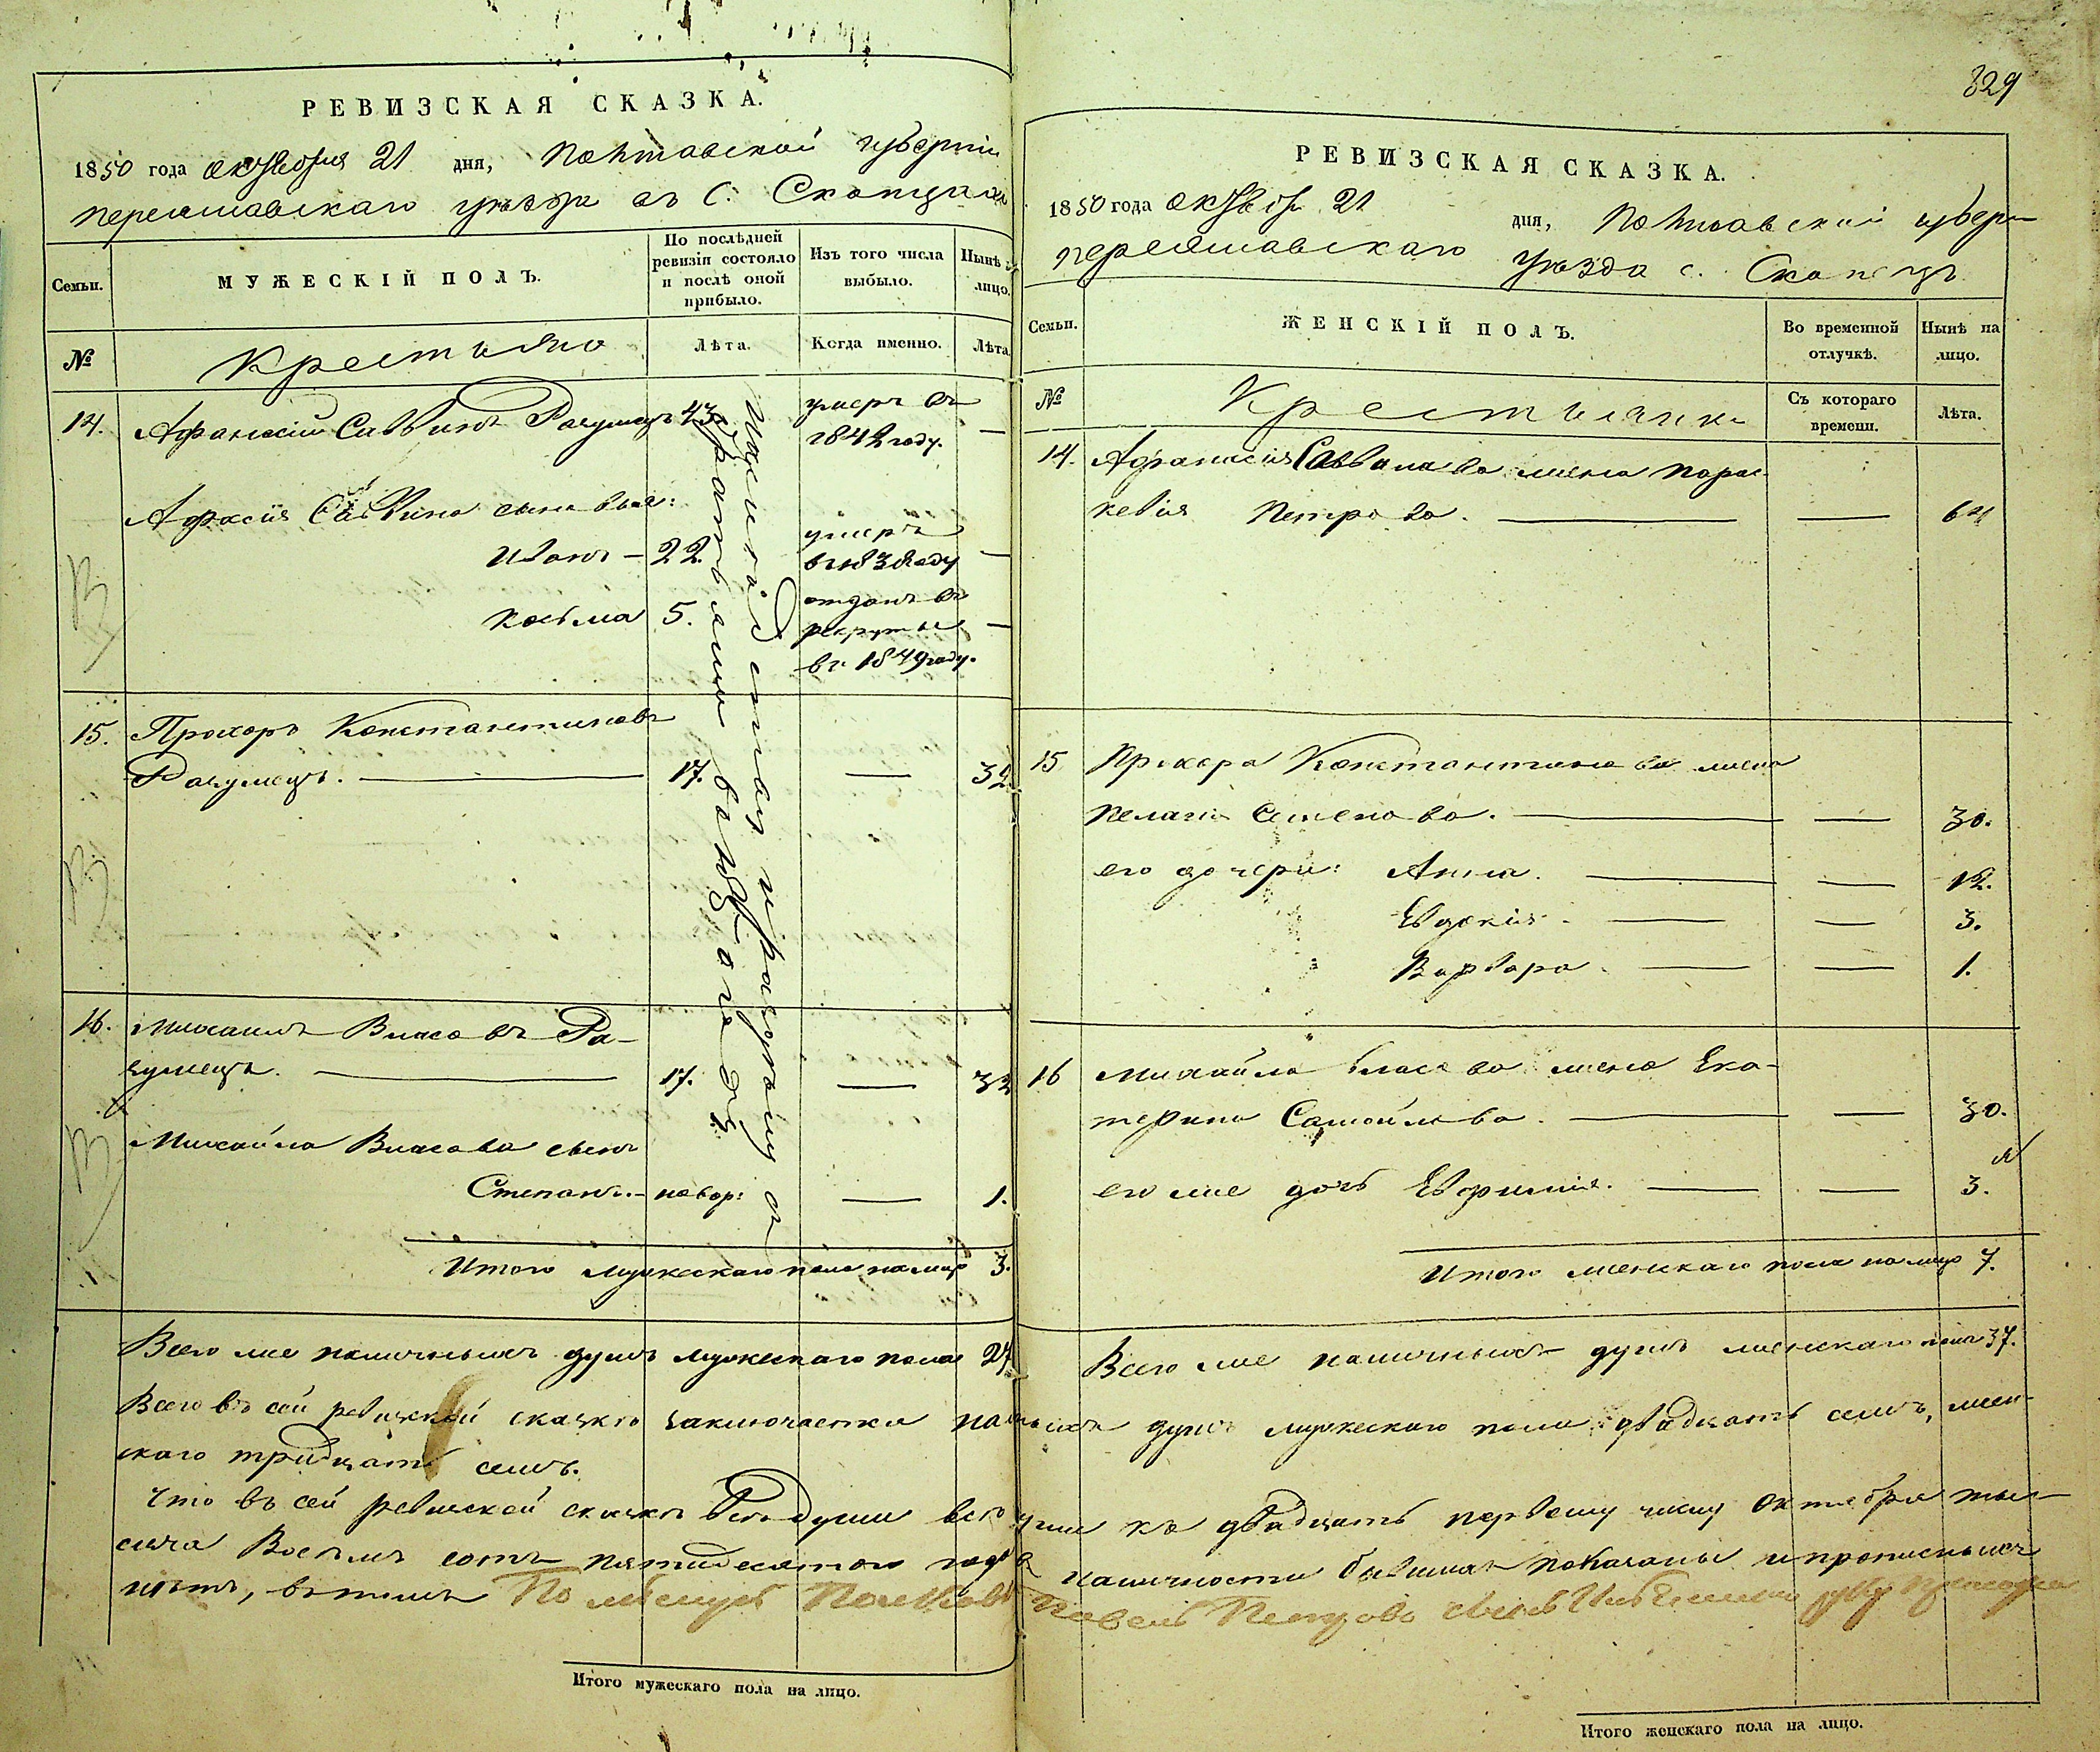 РЕВИЗСКАЯ СКАЗКА.
1850 года октября 21 дня, Полтавской губернии
Переяславскаго уезда въ с. Скопцахъ
Семьи.
МУЖЕСКІЙ ПОЛЪ.
По послѣдней ревизіи состояло и послѣ оной прибыло.
Изъ того числа выбыло.
Нынѣ лицо.
№
Крестьяне
Лѣта.
Когда именно.
Лѣта
14. Афанасій Саввинъ Разумецъ 43. умеръ въ 1842 году. —
Афанасія Саввина сыновья:
Иванъ — 22. умеръ въ 1838 году —
Косьма 5. отданъ въ рекруты въ 1849 году. —
15. Прохоръ Константиновъ
Разумецъ. — 17. — 32
16. Михаилъ Власовъ Ра-
зумецъ. — 17. — 32
Михайла Власова сынъ
Степанъ. — новор: — 1.
Итого мужескаго пола налицо 3.
Всего же наличныхъ душъ мужескаго пола 27
829
РЕВИЗСКАЯ СКАЗКА.
1850 года октября 21 дня, Полтавской губерн
Переяславскаго уѣзда с. Скопецъ
Семьи.
ЖЕНСКІЙ ПОЛЪ.
Во временной отлучкѣ.
Нынѣ на лицо.
№
Крестьянки
Съ котораго времени.
Лѣта.
14. Афанасія Саввина жена Парас-
кевія Петрова. — — 64
15 Прохора Константинова жена
Пелагія Семенова. — — 30.
его дочери: Анна. — — 12.
Евдокія — — 3.
Варвара. — — 1.
16 Михайла Власова жена Ека-
терина Самойлова. — — 30.
его же дочь Евфимія. — — 3.
Итого женскаго пола налицо 7.
Всего же наличныхъ душъ женскаго пола 37.
Всего въ сей ревизской сказкѣ заключается наличныхъ душъ мужескаго пола двадцать семь, жен-
скаго тридцать семь.
Что въ сей ревизской сказкѣ всѣ души къ двадцать первому числу октября тыс-
яча восемь сотъ пятидесятого года въ наличности бывшія показаны и прописныхъ
нѣтъ, въ томъ Помѣщикъ Павелъ Петровъ сынъ руку приложилъ
Итого мужескаго пола на лицо.
Итого женскаго пола на лицо.